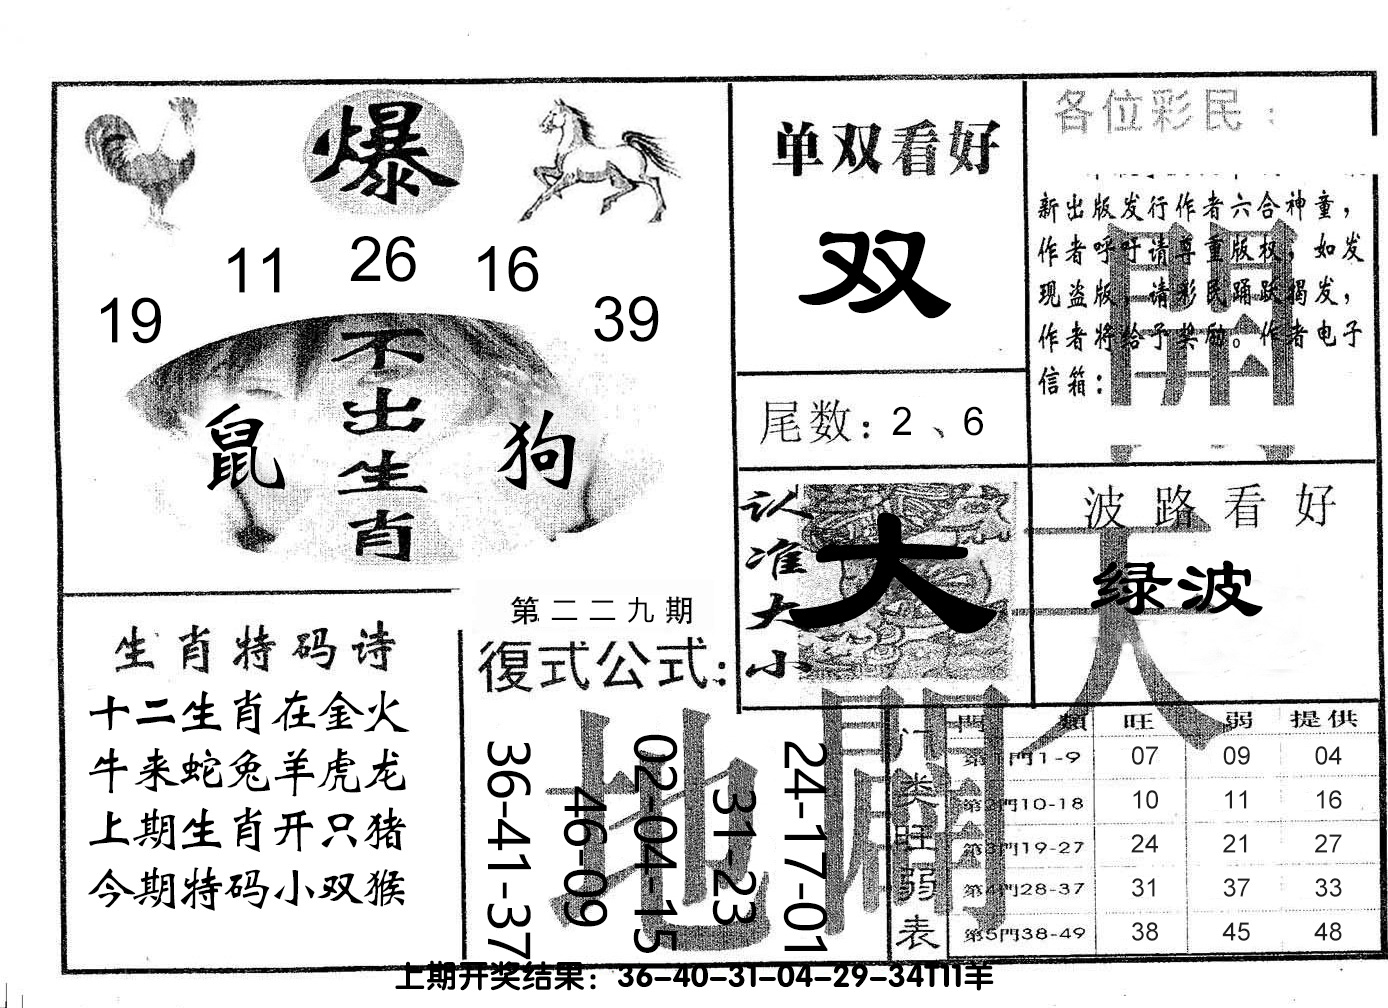 爆
11 26 16
19 39
不出生肖
鼠 狗
单双看好
双
尾数：2、6
各位彩民：
新出版发行作者六合神童，
作者呼吁请尊重版权，如发
现盗版，请彩民踊跃揭发，
作者将给予奖励。作者电子
信箱：
開
认准大小
大
波路看好
绿波
天
生肖特码诗
十二生肖在金火
牛来蛇兔羊虎龙
上期生肖开只猪
今期特码小双猴
第二二九期
復式公式：
36-41-37
46-09
02-04-15
31-23
24-17-01
地
門类旺弱表
門類 旺 弱 提供
第1門1-9 07 09 04
第2門10-18 10 11 16
第3門19-27 24 21 27
第4門28-37 31 37 33
第5門38-49 38 45 48
上期开奖结果：36-40-31-04-29-34T11羊